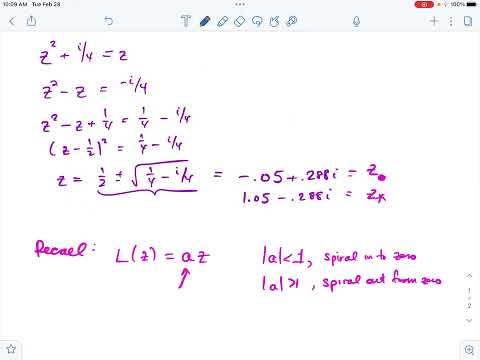 10:09 AM Tue Feb 28
100%
z² + i/4 = z
z² - z = -i/4
z² - z + 1/4 = 1/4 - i/4
(z - 1/2)² = 1/4 - i/4
z = 1/2 ± √(1/4 - i/4) = -.05 + .288i = z₀
1.05 - .288i = z*
Recall: L(z) = az
|a| < 1, spiral in to zero
|a| > 1, spiral out from zero
1
2